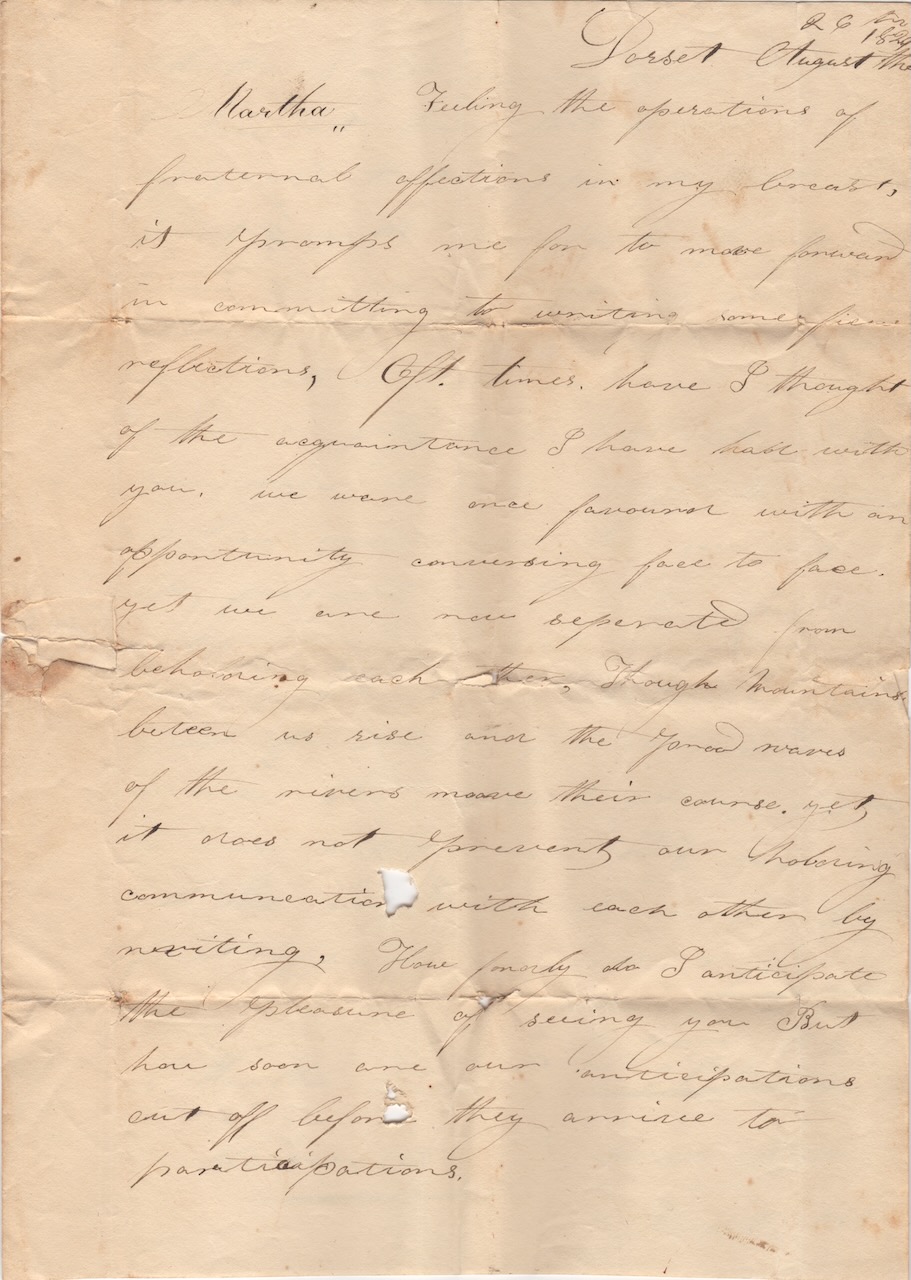 26
Dorset August the
Martha,, Feeling the operations of
fraternal affections in my breast,
it promps me for to move forward
in committing to writing some
reflections, Oft. times. have I thought
of the acquaintance I have had with
you. we ware once favourd with an
opportunity conversing face to face.
yet we are now seperated from
beholding each other, Though Mountains
beteen us rise and the proud waves
of the rivers moove their course. yet,
it does not prevent, our holding
communeation with each other by
writing, How fondly do I anticipate
the pleasure of seeing you But
how soon are our anticipations
cut off before they arrive to
participations.